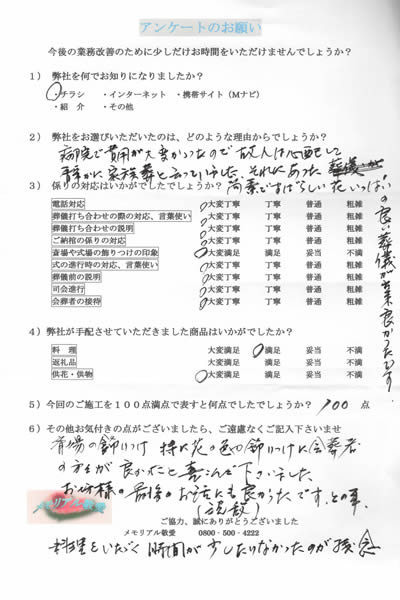 アンケートのお願い
今後の業務改善のために少しだけお時間をいただけませんでしょうか？
1） 弊社を何でお知りになりましたか？
・チラシ ・インターネット ・携帯サイト（Mナビ）
・紹 介 ・その他
2） 弊社をお選びいただいたのは、どのような理由からでしょうか？
病院で費用が大変かかったので故人は心配して
事かに家族葬と云っていました、それにあった
簡素ですばらしい花いっぱい
の良い葬儀が出来良かったです
3） 係りの対応はいかがでしたでしょうか？
電話対応 大変丁寧 丁寧 普通 粗雑
葬儀打ち合わせの際の対応、言葉使い 大変丁寧 丁寧 普通 粗雑
葬儀打ち合わせの説明 大変丁寧 丁寧 普通 粗雑
ご納棺の係りの対応 大変丁寧 丁寧 普通 粗雑
斎場や式場の飾りつけの印象 大変満足 満足 妥当 不満
式の進行時の対応、言葉使い 大変丁寧 丁寧 普通 粗雑
葬儀前の説明 大変丁寧 丁寧 普通 粗雑
司会進行 大変丁寧 丁寧 普通 粗雑
会葬者の接待 大変丁寧 丁寧 普通 粗雑
4） 弊社が手配させていただきました商品はいかがでしたか？
料 理 大変満足 満足 妥当 不満
返礼品 大変満足 満足 妥当 不満
供花・供物 大変満足 満足 妥当 不満
5） 今回のご施工を１００点満点で表すと何点でしたでしょうか？ 100 点
6） その他お気付きの点がございましたら、ご遠慮なくご記入下さいませ
斎場の飾りつけ 特に花の色の飾りつけに会葬者
の方々が良かったと喜こんで下さいました
お坊様の最後のお話にも良かったです、との事、
（説教）
メモリアル敬愛
ご協力、誠にありがとうございました
メモリアル敬愛 0800-500-4222
料理をいただく時間が少したりなかったのが残念